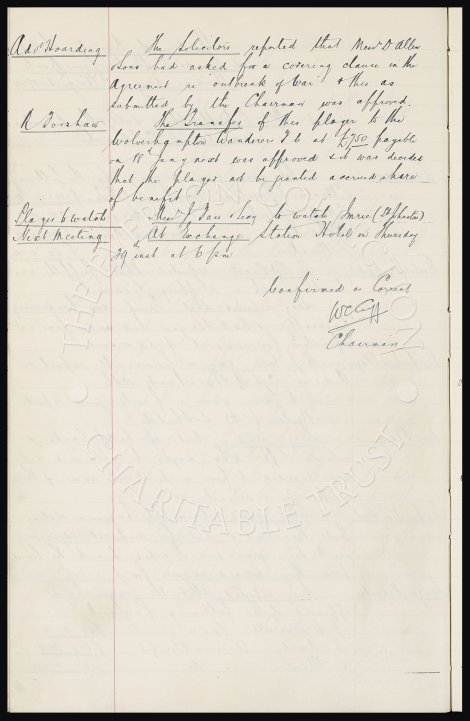 Advt Hoarding
The Solicitors reported that Messrs D Allen
& Sons had asked for a covering clause in the
Agreement re "outbreak of War" & this as
submitted by the Chairman was approved.
R Forshaw
The Transfer of this player to the
Wolverhampton Wanderers F C at £750 payable
on 18th Jany next was approved & it was decided
that the player not be granted accrued share
of benefit
Player to watch
Messrs J to watch Imrie (St Johnstone)
Next Meeting
At Exchange Station Hotel on Thursday
29th inst at 6 pm
Confirmed as Correct
W C Cuff
Chairman
THE EVERTON COLLECTION
CHARITABLE TRUST